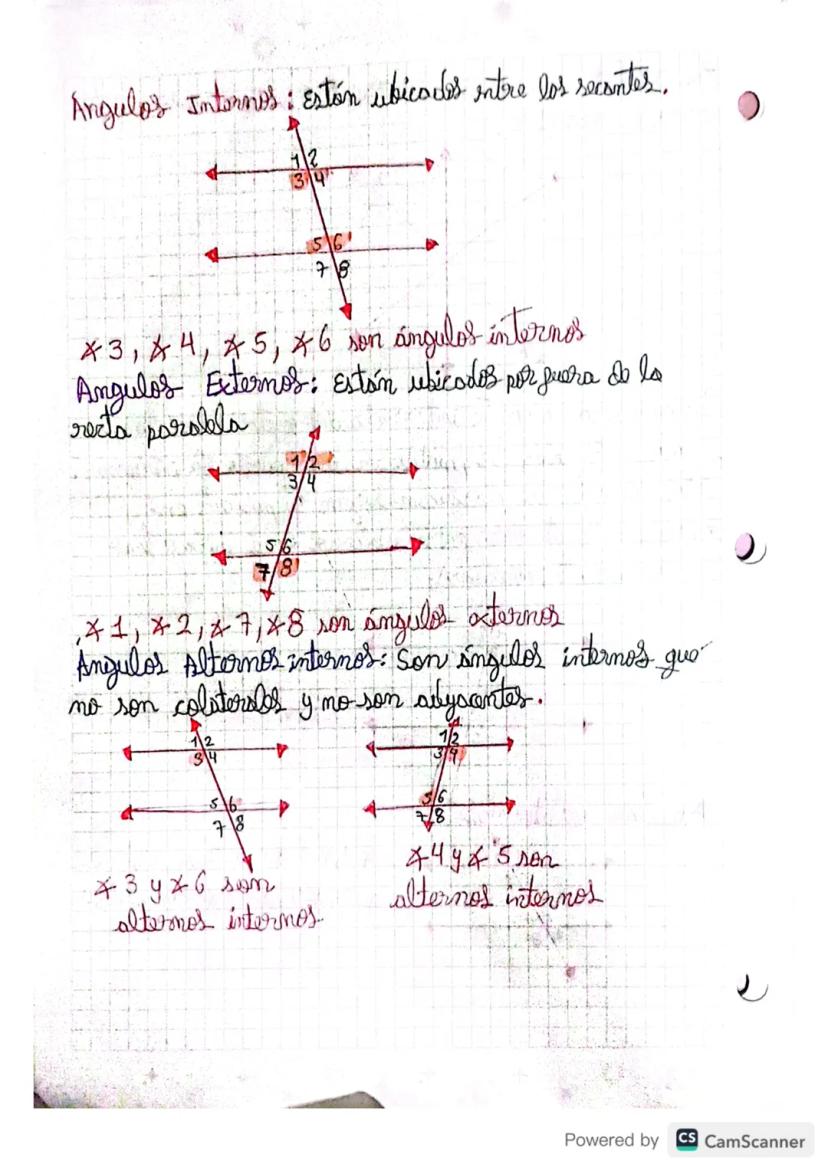 Angulos Internos: Están ubicados entre los secantes.
1 2
3 4
5 6
7 8
∡3, ∡4, ∡5, ∡6 son ángulos internos
Angulos Externos: Están ubicados por fuera de la
recta paralela
1 2
3 4
5 6
7 8
∡1, ∡2, ∡7, ∡8 son ángulos externos
Angulos Alternos internos: Son ángulos internos que
no son colaterales y no son adyacentes.
1 2
3 4
5 6
7 8
1 2
3 4
5 6
7 8
∡3 y ∡6 son
alternos internos.
∡4 y ∡5 son
alternos internos
Powered by CS CamScanner